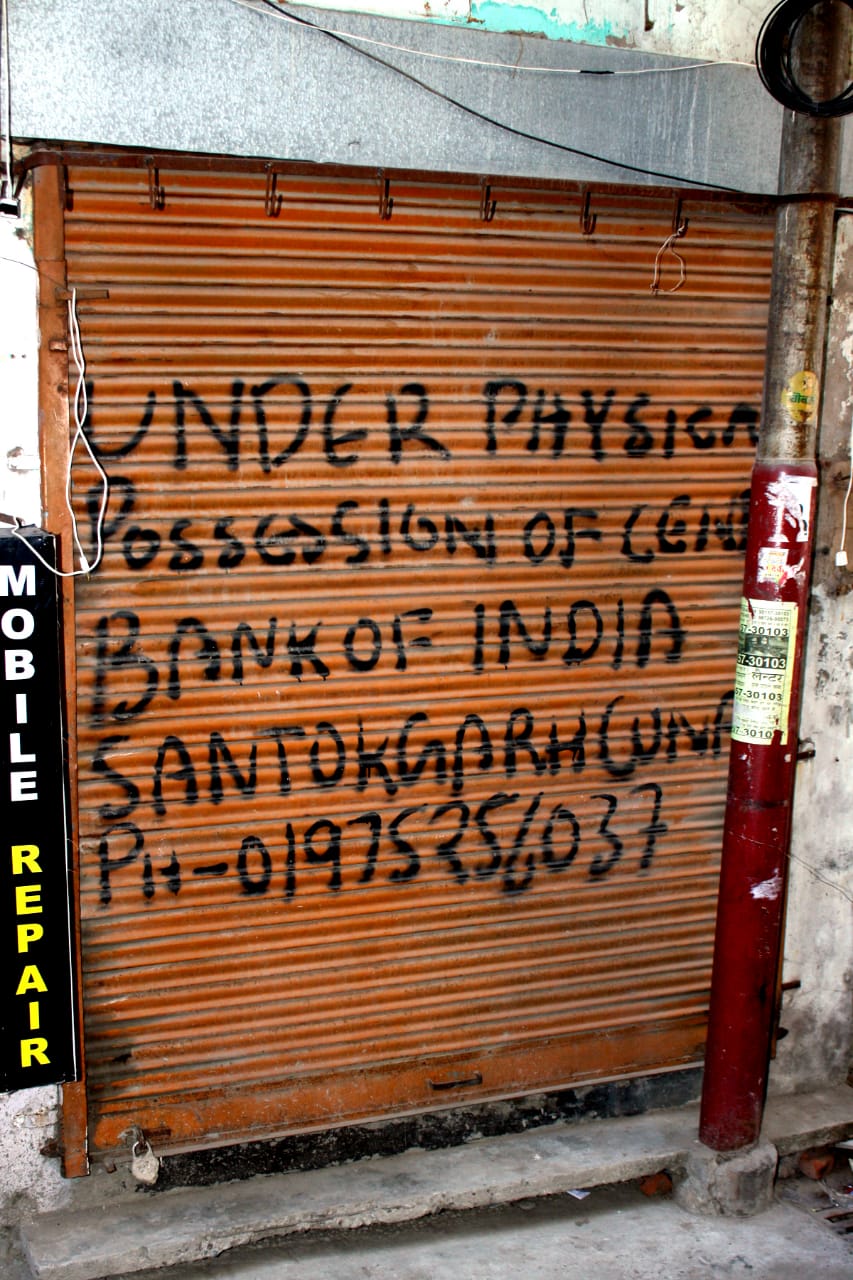 UNDER PHYSICA
POSSESSION OF CENT
BANK OF INDIA
SANTOKGARH (UNA
PH-01975256037
MOBILE REPAIR
57-30103
57-30103
लेन्टर
57-30103